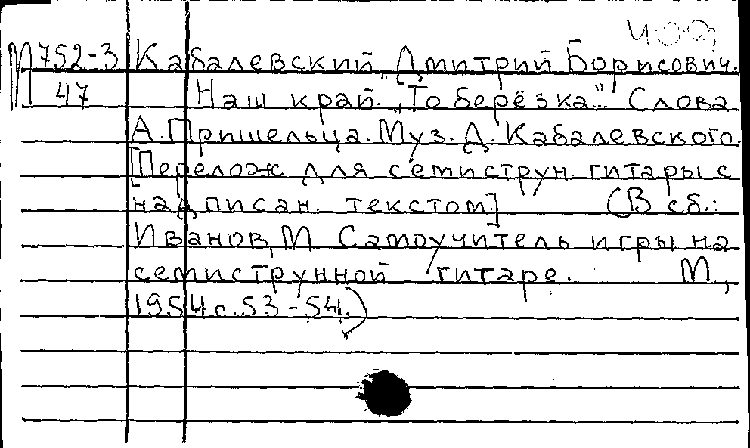 ЧОД
М752-3 Кабалевский, Дмитрий Борисович.
47 Наш край. "То берёзка..." Слова
А. Пришельца. Муз. Д. Кабалевского.
[Перелож для семиструн. гитары с
надписан. текстом] (В сб.:
Иванов, М Самоучитель игры на
семиструнной гитаре. М.,
1954 с. 53-54.)